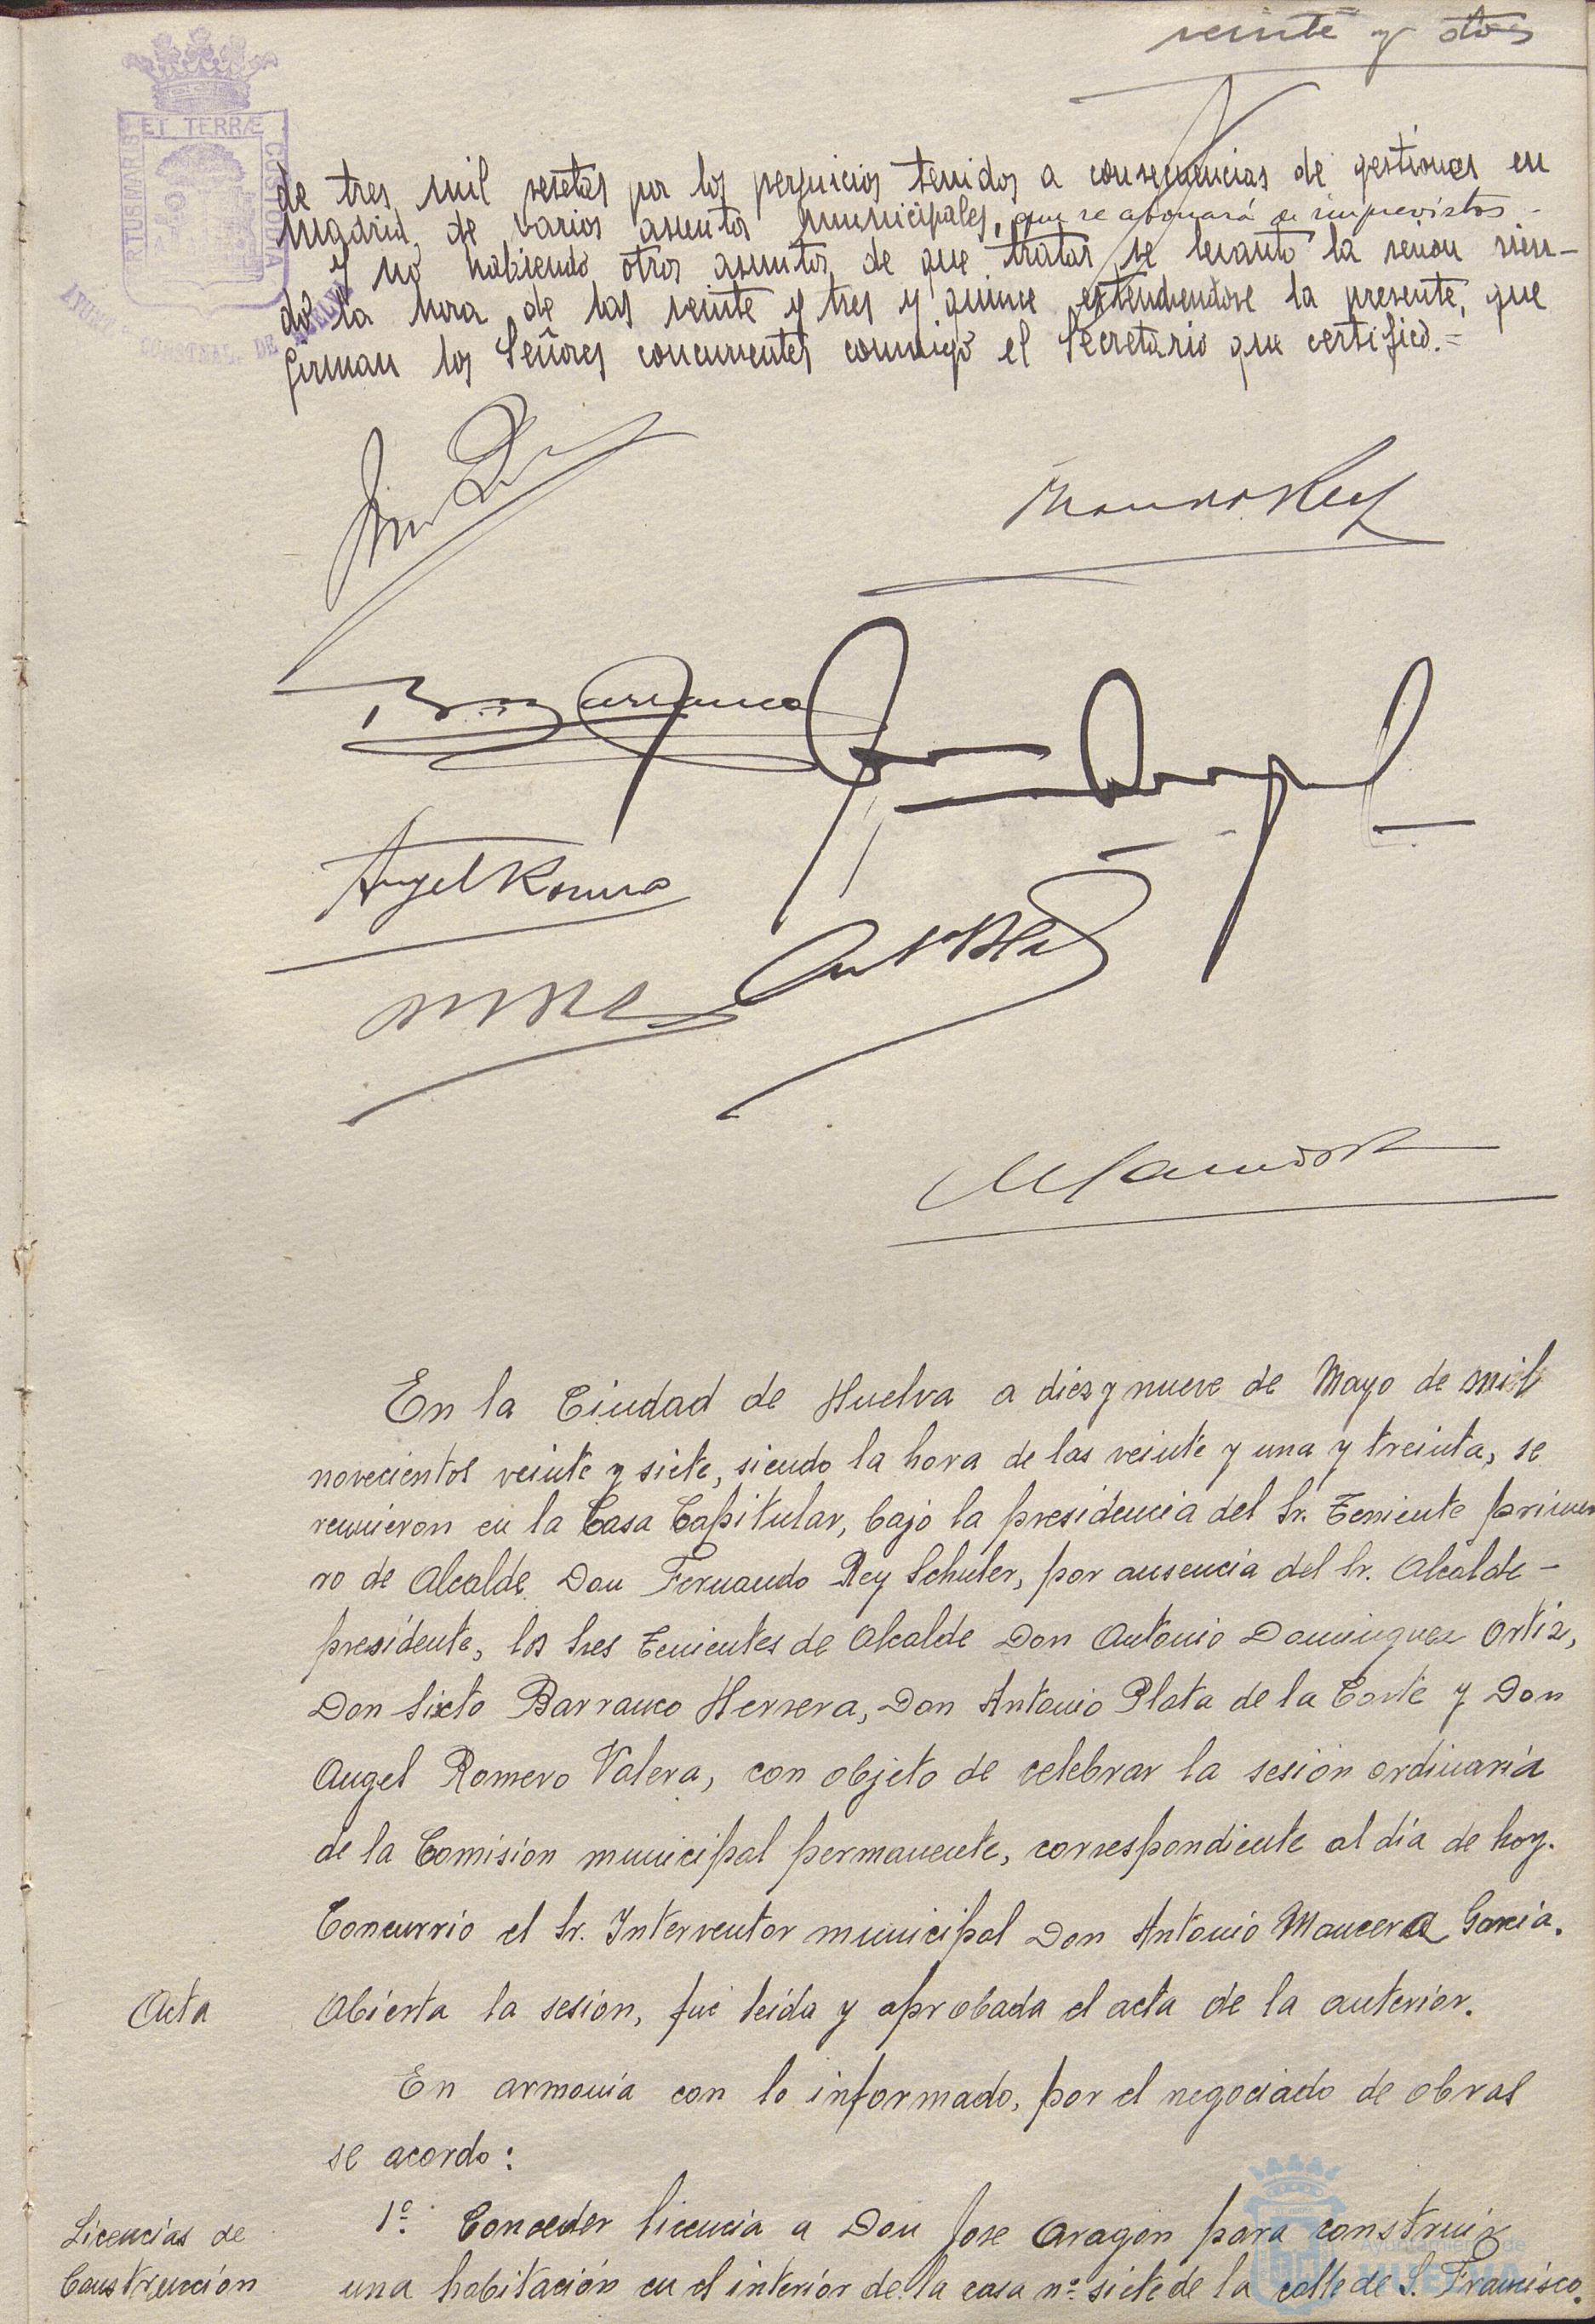 veinte y dos
ET TERRÆ
PORTUS MARIS
CUSTODIA
de tres mil pesetas por los perjuicios tenidos a consecuencias de gestiones en
Madrid, de varios asuntos municipales, que se abonará de imprevistos.-
Y no habiendo otros asuntos de que tratar se levantó la sesion sien-
do la hora de las veinte y tres y quince extendiendose la presente, que
firman los Señores concurrentes conmigo el Secretario que certifico.=
Angel Romero
En la Ciudad de Huelva a diez y nueve de Mayo de mil
novecientos veinte y siete, siendo la hora de las veinte y una y treinta, se
reunieron en la Casa Capitular, bajo la presidencia del Sr. Teniente prime
ro de Alcalde Don Fernando Rey Schuler, por ausencia del Sr. Alcalde-
presidente, los Sres Tenientes de Alcalde Don Antonio Dominguez Ortiz,
Don Sixto Barranco Herrera, Don Antonio Plata de la Corte y Don
Angel Romero Valera, con objeto de celebrar la sesión ordinaria
de la Comisión municipal permanente, correspondiente al día de hoy.
Concurrio el Sr. Interventor municipal Don Antonio Mancera Garcia.
Acta Abierta la sesión, fué leída y aprobada el acta de la anterior.
En armonía con lo informado, por el negociado de obras
se acordo:
Licencias de 1º. Conceder licencia a Don Jose Aragón para construir
Construcción una habitación en el interior de la casa nº siete de la calle de S. Francisco.
Ayuntamiento de
HUELVA